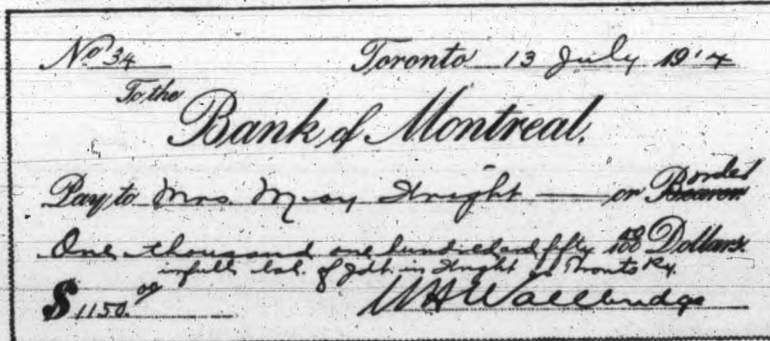 No 34 Toronto 13 July 1914
To the
Bank of Montreal.
Pay to Mrs. May Wright or order Bearer
One thousand one hundred and fifty 00/100 Dollars.
in full bal. of Jdt. in Wright vs Toronto Ry.
$1150.00 W H Wallbridge